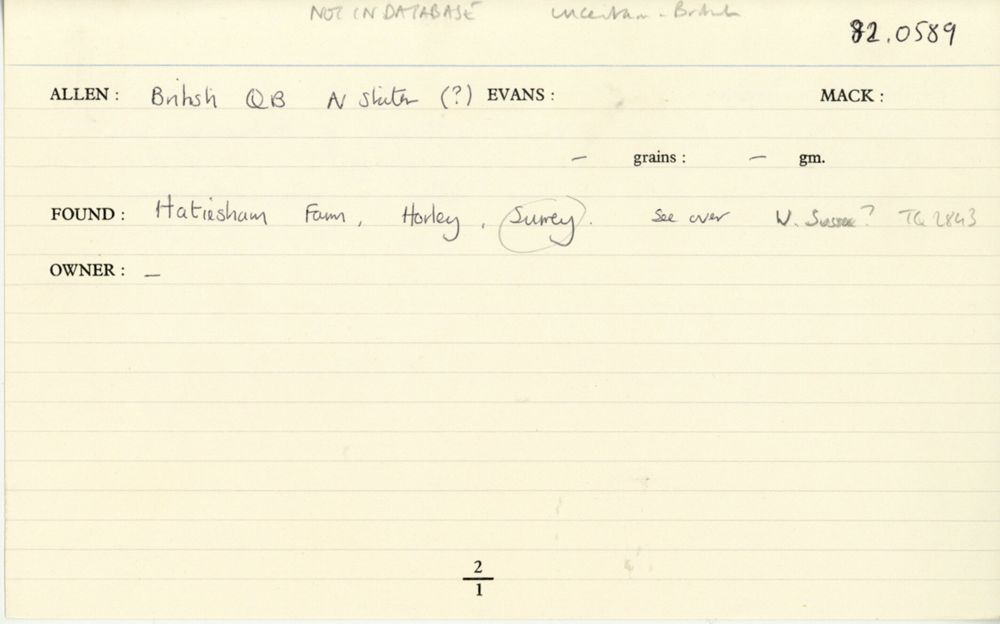 NOT IN DATABASE uncertain - British
82.0589
ALLEN: British QB N stater (?) EVANS: MACK:
– grains: – gm.
FOUND: Hatiesham Farm, Horley, Surrey. See over W. Sussex? TQ 2843
OWNER: –
2
1